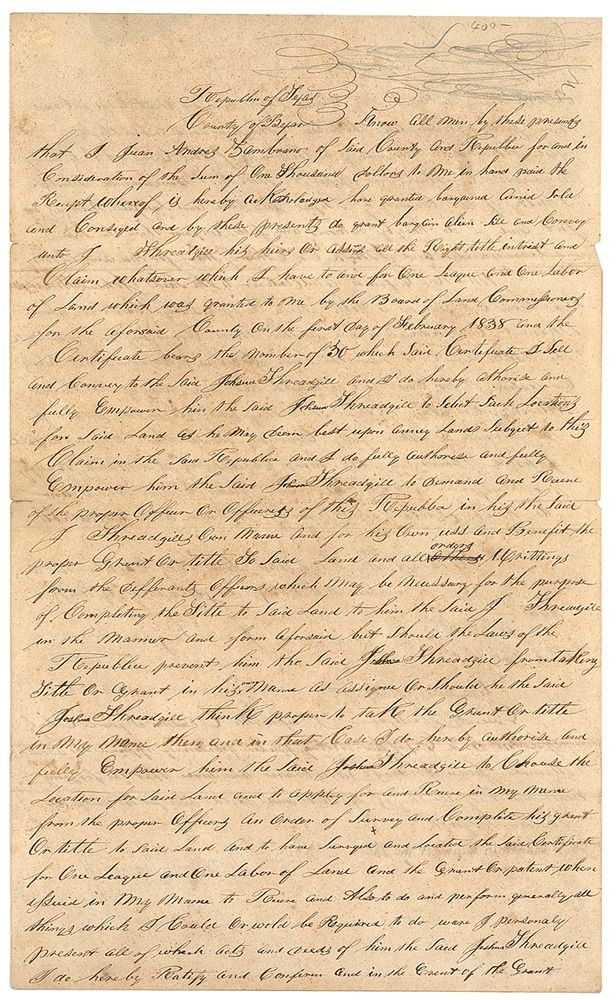 400-
Republic of Texas
County of Bexar Know all men by these presents
that I Juan Andres Zambrano of Said County and Republic for and in
Consideration of the Sum of One Thousand dollars to me in hand paid the
Receipt whereof is hereby acknoledged have granted bargained and Sold
and Conveyed and by these presents do grant bargain alien Sell and Convey
unto J Threadgill his heirs Or assins all the Right title intrest and
Claim whatsoever which I have to and for One League and One Labor
of Land which was granted to me by the Board of Land Commissioners
for the aforsaid County On the first day of February 1838 and the
Certificate bears the number of 30 which Said Certificate I Sell
and Convey to the Said Joshua Threadgill and I do hereby athorise and
fully Empower him the Said Joshua Threadgill to Select Such Locations
for Said Land as he may deem best upon anney Lands Subject to this
Claim in the Said Republic and I do fully authorise and fully
Empower him the Said Joshua Threadgill to demand and Receve
of the proper Officer Or Officers of this Republic in his the Said
J Threadgills Own Name and for his Own uss and Benefit the
proper Grant Or title To Said Land and all orders Writtings
form the Differants Officers which may be necessary for the purpose
of Completing the Title to Said Land to him the Said J Threadgill
in the Manner and form aforsaid but Should the Laws of the
Republic prevent him the Said Joshua Threadgill from taking
Title Or Grant in his own Name as assignee Or Should he the Said
Joshua Threadgill think proper to tak the Grant Or title
in my Name then and in that Case I do here by authorise and
fully Empower him the Said Joshua Threadgill to Chouse the
Location for Said Land and to appley for and Receve in my Name
from the proper Officers an Order of Survey and Complete his grant
Or title to Said Land and to have Surveyed and Located the Said Certificate
for One League and One Labor of Land and the Grant Or patent when
issued in my Name to Receve and Also to do and perform generally all
things which I Could Or wold be Required to do ware I personaly
present all of which acts and deeds of him the Said Joshua Threadgill
I do here by Ratify and Confirm and in the Event of the Grant